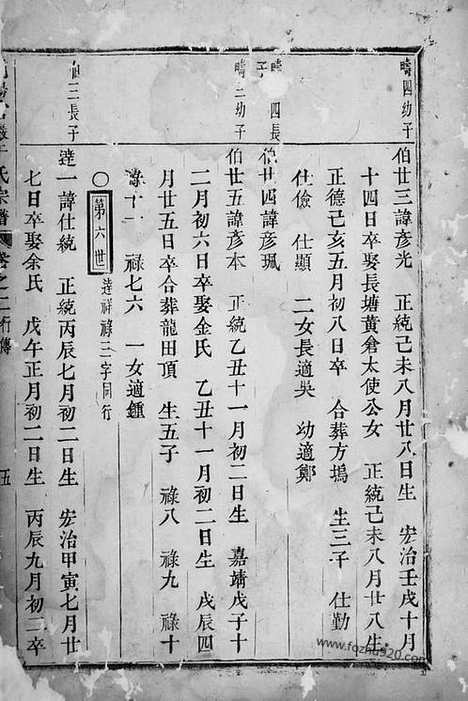 時四幼子
伯廿三諱彦光 正統己未八月廿八日生 宏治壬戌十月
十四日卒娶長塘黄倉太使公女 正統己未八月廿八生
正德己亥五月初八日卒 合葬方塢 生三子 仕勤
仕儉 仕顯 二女長適吳 幼適鄭
時四長
子
伯廿四諱彦珮
時二幼子
伯廿五諱彦本 正統乙丑十一月初二日生 嘉靖戊子十
二月初六日卒娶金氏 乙丑十一月初二日生 戊辰四
月廿五日卒合葬龍田頂 生五子 祿八 祿九 祿十
祿十一 祿七六 一女適鍾
○第六世 達祥祿三字同行
三長子
達一諱仕統 正統丙辰七月初二日生 宏治甲寅七月廿
七日卒娶余氏 戊午正月初二日生 丙辰九月初三卒
氏宗譜 卷之二行傳 五
www.fozhu920.com